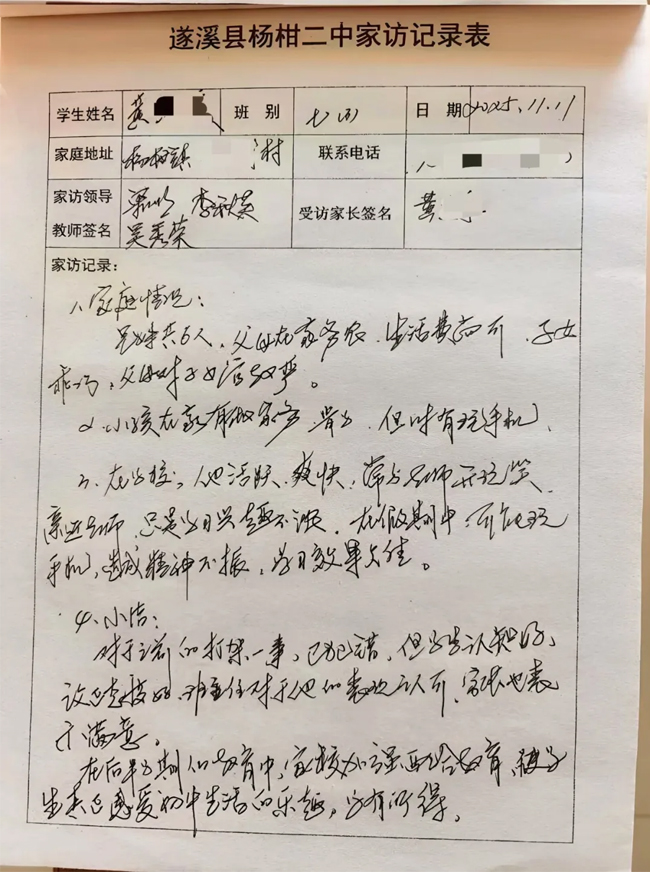 遂溪县杨柑二中家访记录表
学生姓名 黄 班 别 七 日 期 2025.11.11
家庭地址 杨柑镇 村 联系电话
家访领导 李
教师签名 吴秀荣 受访家长签名 黄
家访记录：
1、家庭情况：
兄弟共6人，父母在家务农，生活费尚可，子女
乖巧，父母对子女管教严。
2、小孩在家有做家务 ，但时有玩手机，
3、在学校，他活跃、爽快，常与老师开玩笑，
亲近老师，只是学习兴趣不浓，在假期中，可能玩
手机，造成精神不振，学习效果欠佳。
4、小结：
对于之前的打架一事，已犯错，但学生认知好，
改正，班主任对于他的表现认可，家长也表
示满意。
在后半学期的教育中，家校加强配合教育，让学
生真正感受初中生活的乐趣，学有所得。